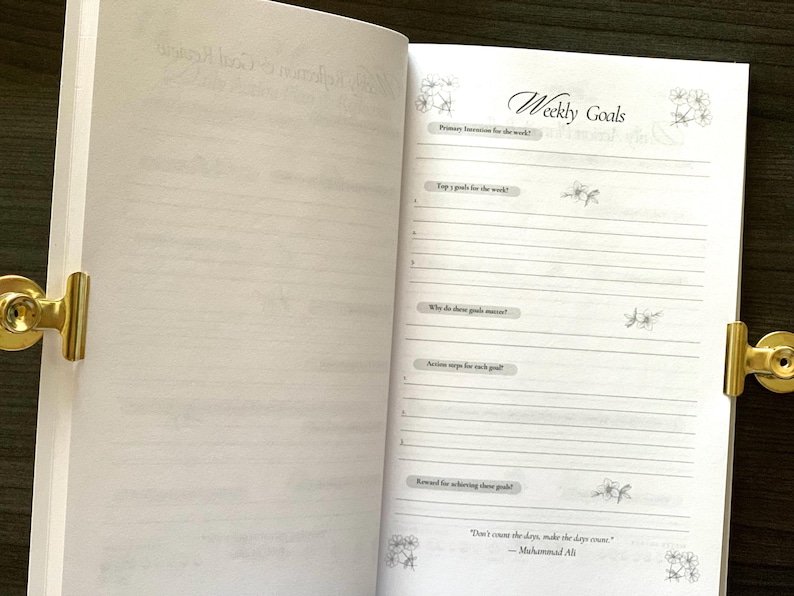 Weekly Goals
Primary Intention for the week?
Top 3 goals for the week?
1.
2.
3.
Why do these goals matter?
Action steps for each goal?
1.
2.
3.
Reward for achieving these goals?
"Don't count the days, make the days count."
— Muhammad Ali